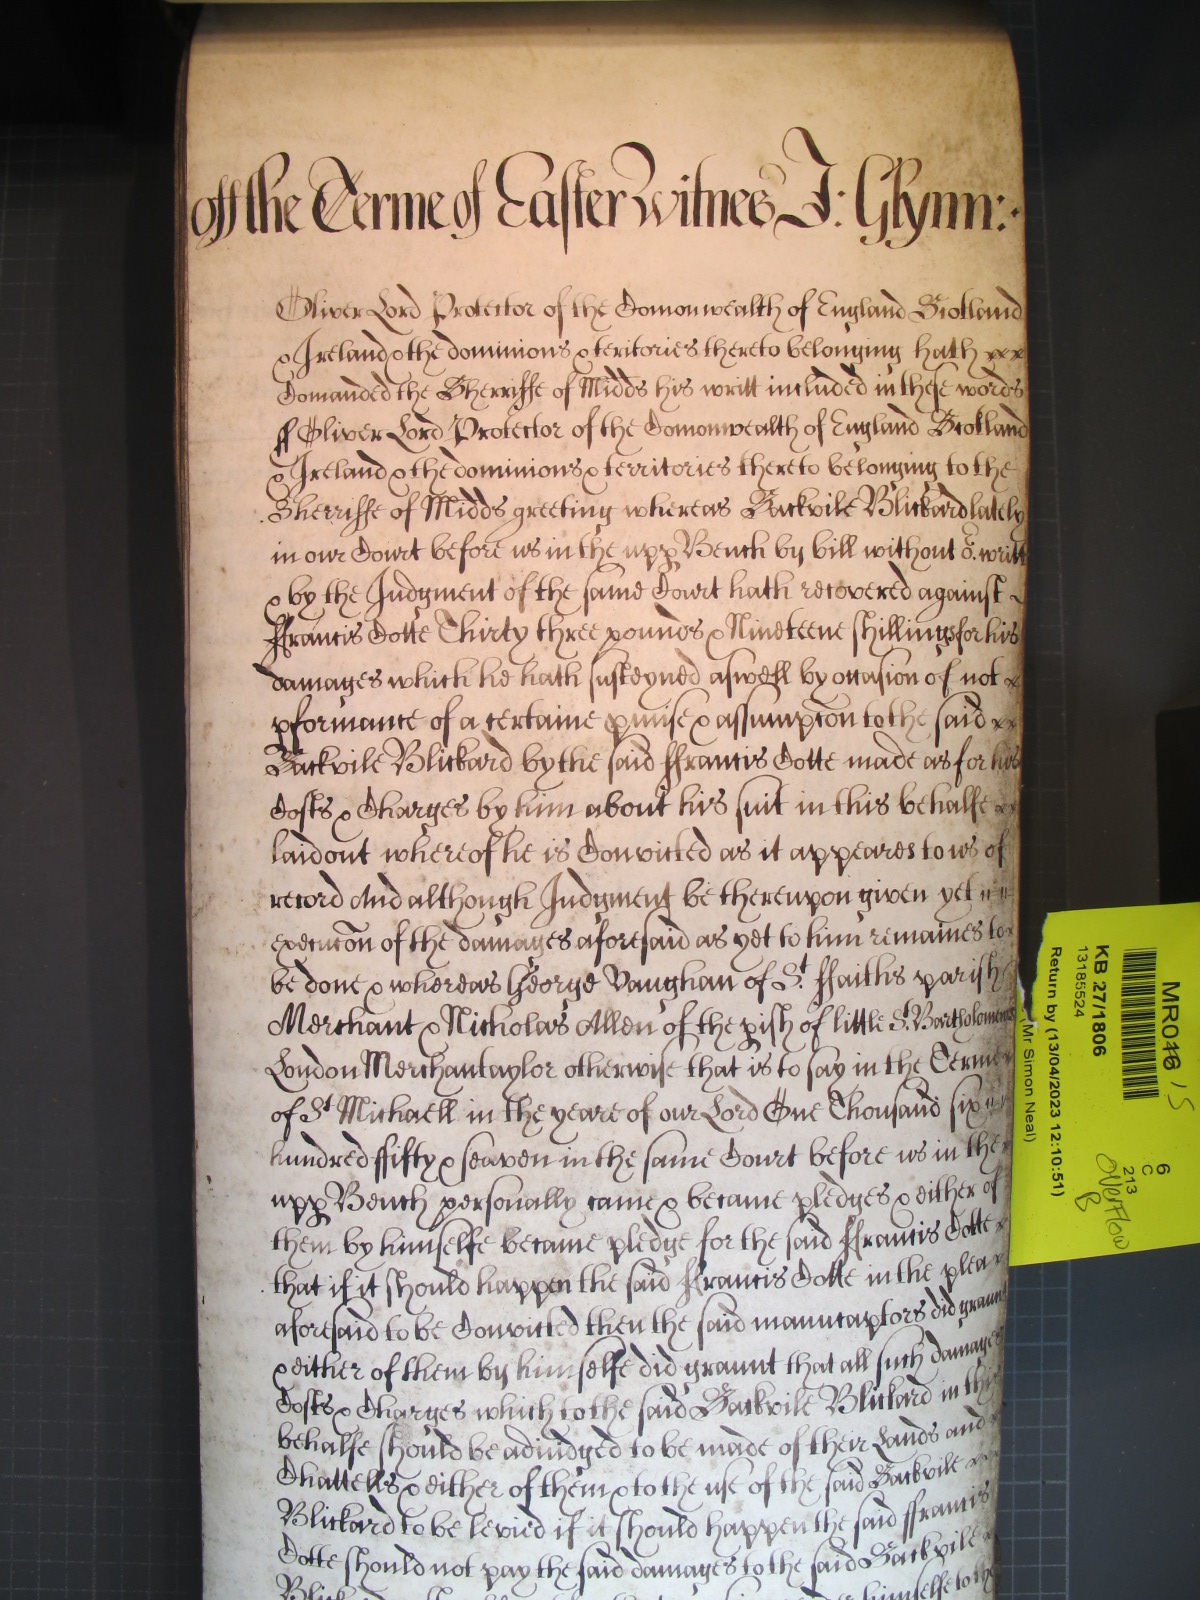 off the Terme of Easter Witnes J: Glynn:
Oliver Lord Protector of the Comonwealth of England Scotland
& Ireland & the dominions & teritories thereto belonging hath
Comanded the Sherriffe of Midds his writt included in these words
ff Oliver Lord Protector of the Comonwealth of England Scotland
& Ireland & the dominions & territories thereto belonging to the
Sherriffe of Midds greeting whereas Sackvile Blickard lately
in our Court before us in the upp Bench by bill without writt
& by the Judgment of the same Court hath recovered against
ffrancis Cotte Thirty three pounds & Nineteene shillings for his
damages which he hath susteyned aswell by occasion of not
pformance of a certaine pmise & assumpcon to the said
Sackvile Blickard by the said ffrancis Cotte made as for his
Costs & Charges by him about his suit in this behalfe
laid out whereof he is Convicted as it appeares to us of
record And although Judgment be thereupon given yet
execucon of the damages aforesaid as yet to him remaines to
be done & whereas George Vaughan of St. ffaithis parish
Merchant & Nicholas Allen of the pish of little St. Bartholomews
London Merchantaylor otherwise that is to say in the Terme
of St Michaell in the yeare of our Lord One Thousand six
hundred ffifty & seaven in the same Court before us in the
upp Bench personally came & became pledges & either of
them by himselfe became pledge for the said ffrancis Cotte
that if it should happen the said ffrancis Cotte in the plea
aforesaid to be Convicted then the said manucaptors did graunt
& either of them by himselfe did graunt that all such damages
Costs & Charges which to the said Sackvile Blickard in this
behalfe should be adiudged to be made of their Lands and
Chattells & either of them & to the use of the said Sackvile
Blickard to be levied if it should happen the said ffrancis
Cotte should not pay the said damages to the said Sackvile
himselfe to the
MR046
15
KB 27/1806
13185524
Return by (13/04/2023 12:10:51)
(Mr Simon Neal)
6
C
213
Overflow
B